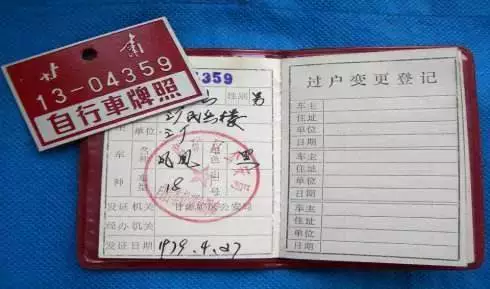 甘肃
13-04359
自行車牌照
4359
性别 男
住址
单位 三厂
车
凤凰
颜色 黑
18
发证机关 甘肃矿区公安局
经办机关
发证日期 1979.4.27
过户变更登记
车主
住址
单位
日期
车主
住址
单位
日期
车主
住址
单位
日期